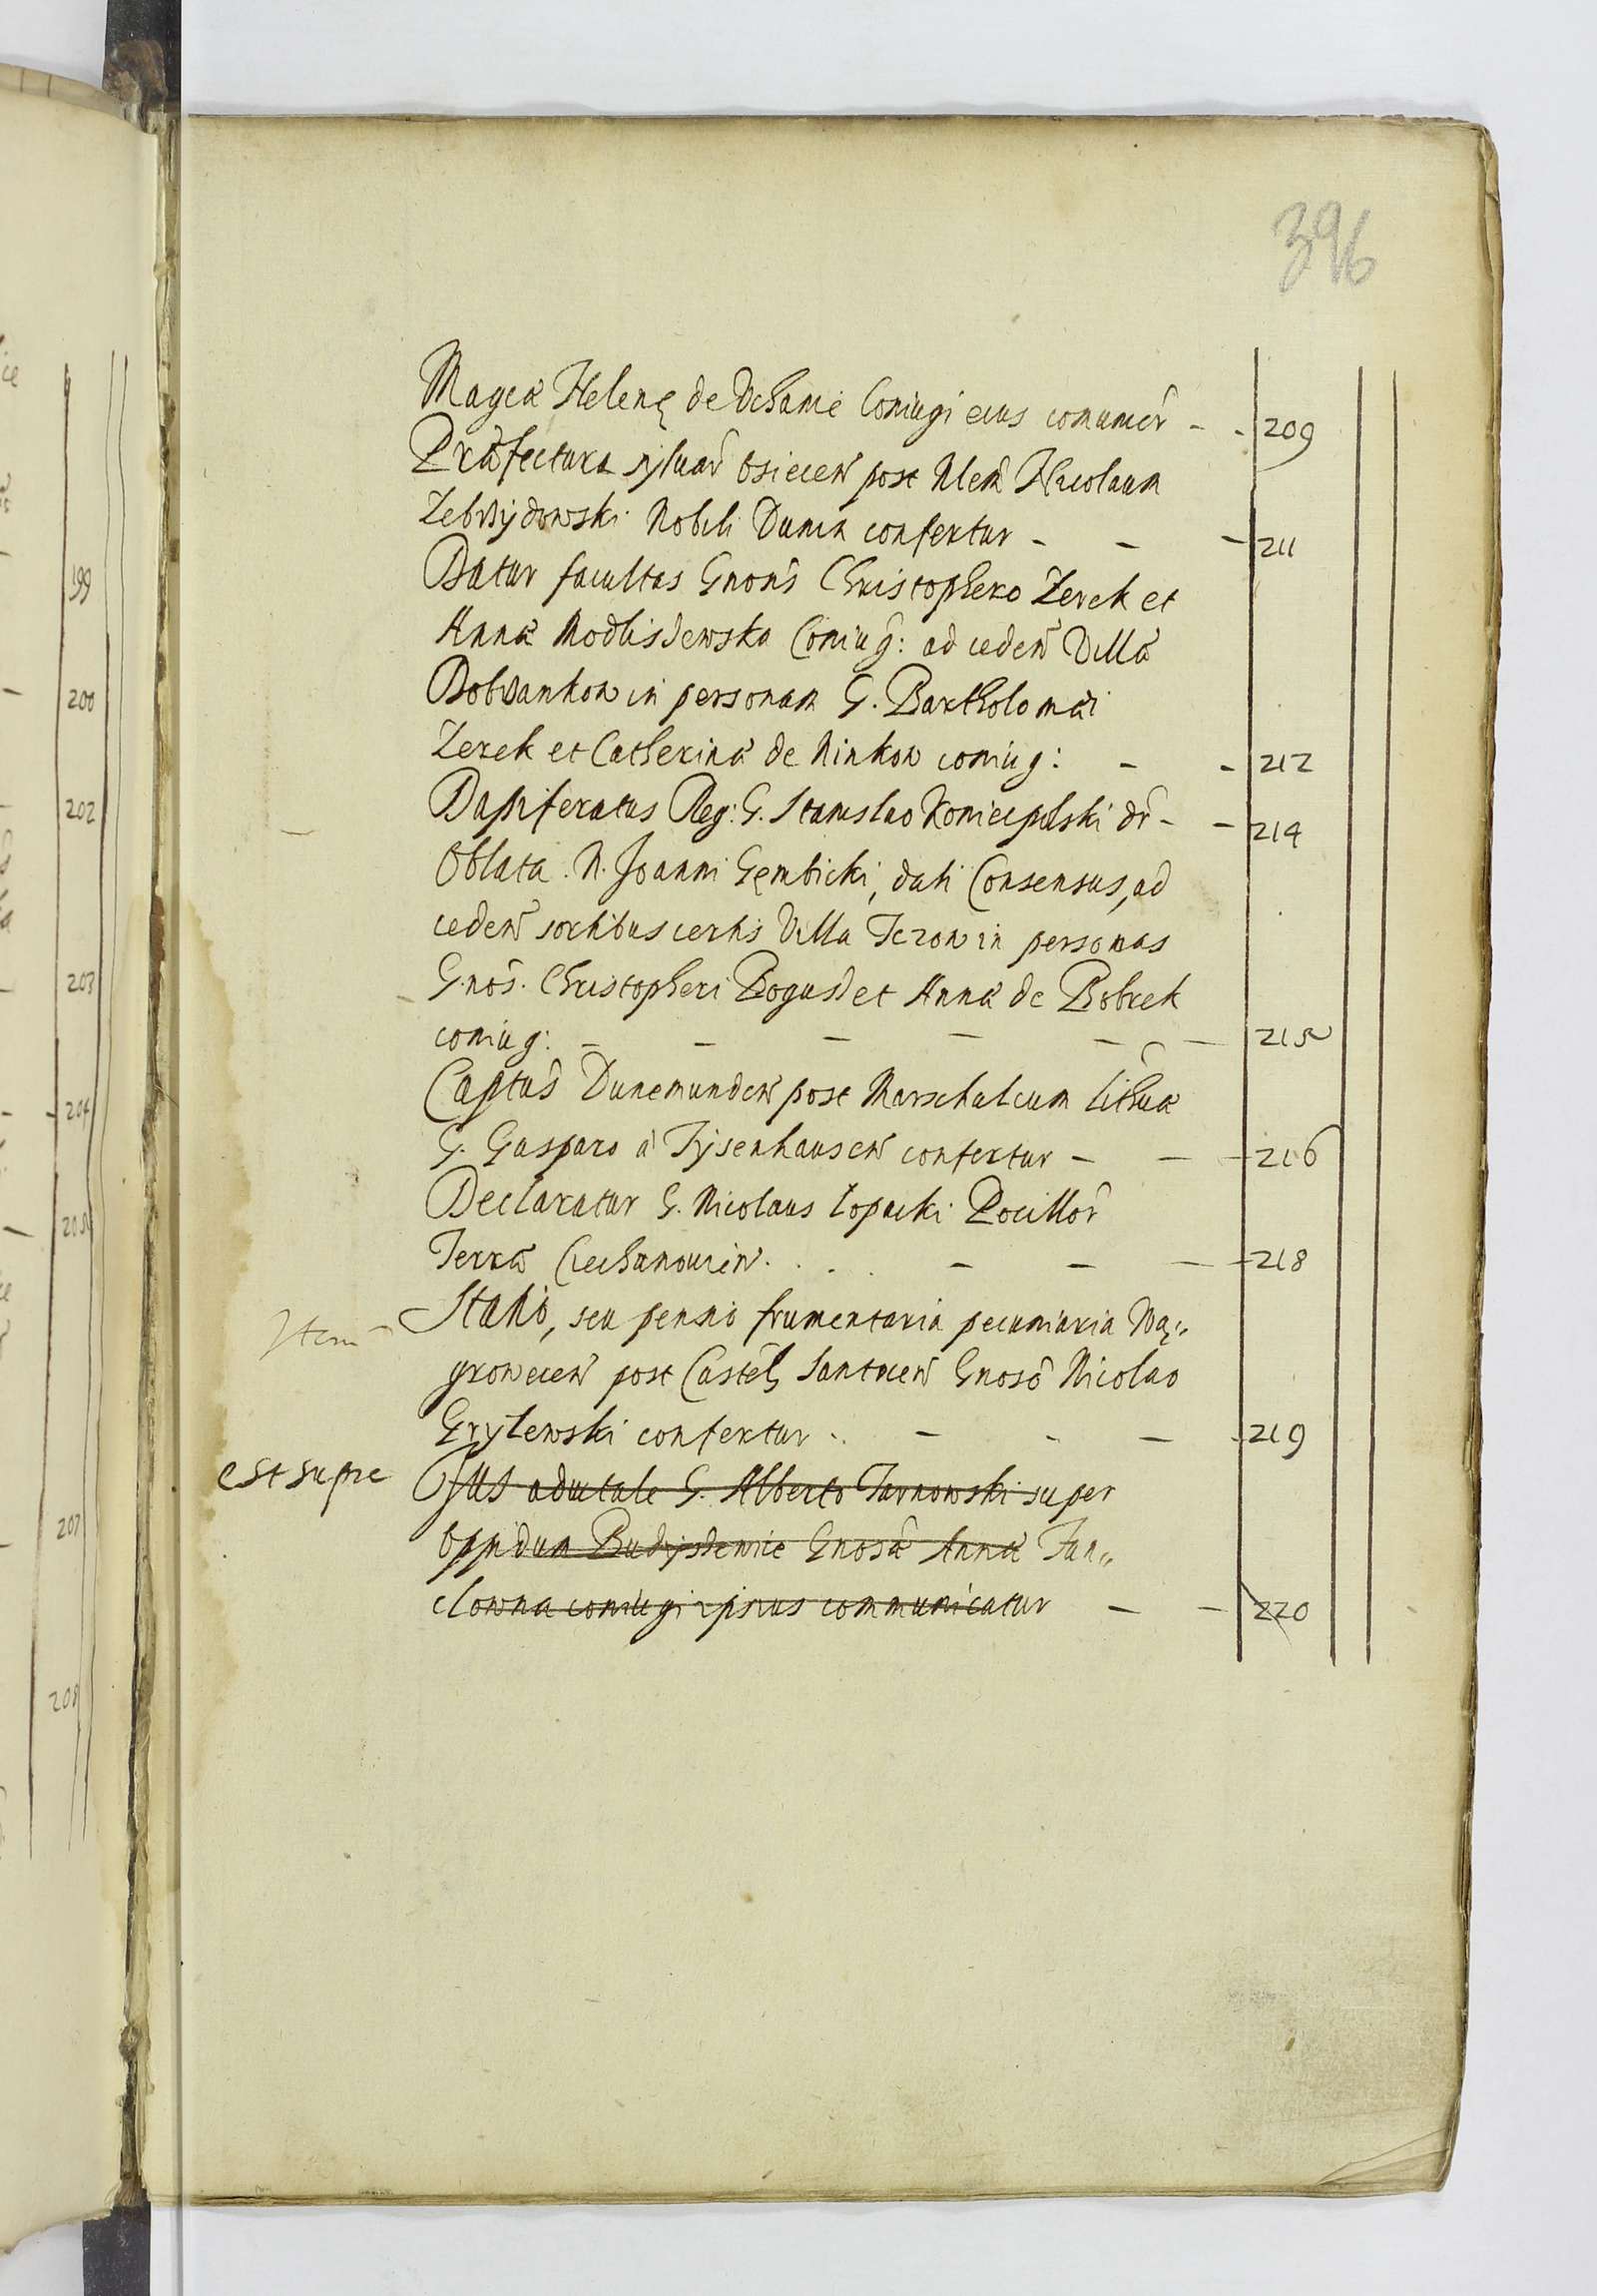 396
Magcæ Helenę de Vchanie Coniugi eius comunicr̃ - - 209
Præfectura syluar̃ Osiecen̄ post Mem̃ Nicolaum
Zebrzydowski Nobili Dunin confertur - - - 211
Datur facultas Gnoris Christophero Zerek et
Annæ Modliszewska Coniug: ad ceden̄ Villa
Bobrankow in personam G. Bartholomæi
Zerek et Catherinæ de Minkow coniug: - - 212
Dapiferatus Reg: G. Stanislao Koniecpolski dr̃ - - 214
Oblata. N. Joanni Gembicki, dati Consensus, ad
ceden̄ sortibus certis Villa Jezow in personas
G.nos. Christopheri Bogusz et Annæ de Bobrek
coniug: - - - - - - 215
Captus̄ Dunemunden̄ post Marschalcum Lithuæ
G. Gasparo à Tysenhausen̄ confertur - - - 216
Declaratur G. Nicolaus Łopacki Pocillor̃
Terræ Ciechanouien̄. . . . - - - 218
Item - Statio, seu pensio frumentaria pecuniaria Wą„
growecen̄ post Castel̃ Santocen̄ Gnoso Nicolao
Gryżewski confertur . . - - - - 219
est supre Jus aduitale G. Alberto Tarnowski super
Oppidum Budziszewice Gnosæ Annæ Fan„
clowna coniugi ipsius communicatur - - 220
199
200
202
203
204
205
207
208